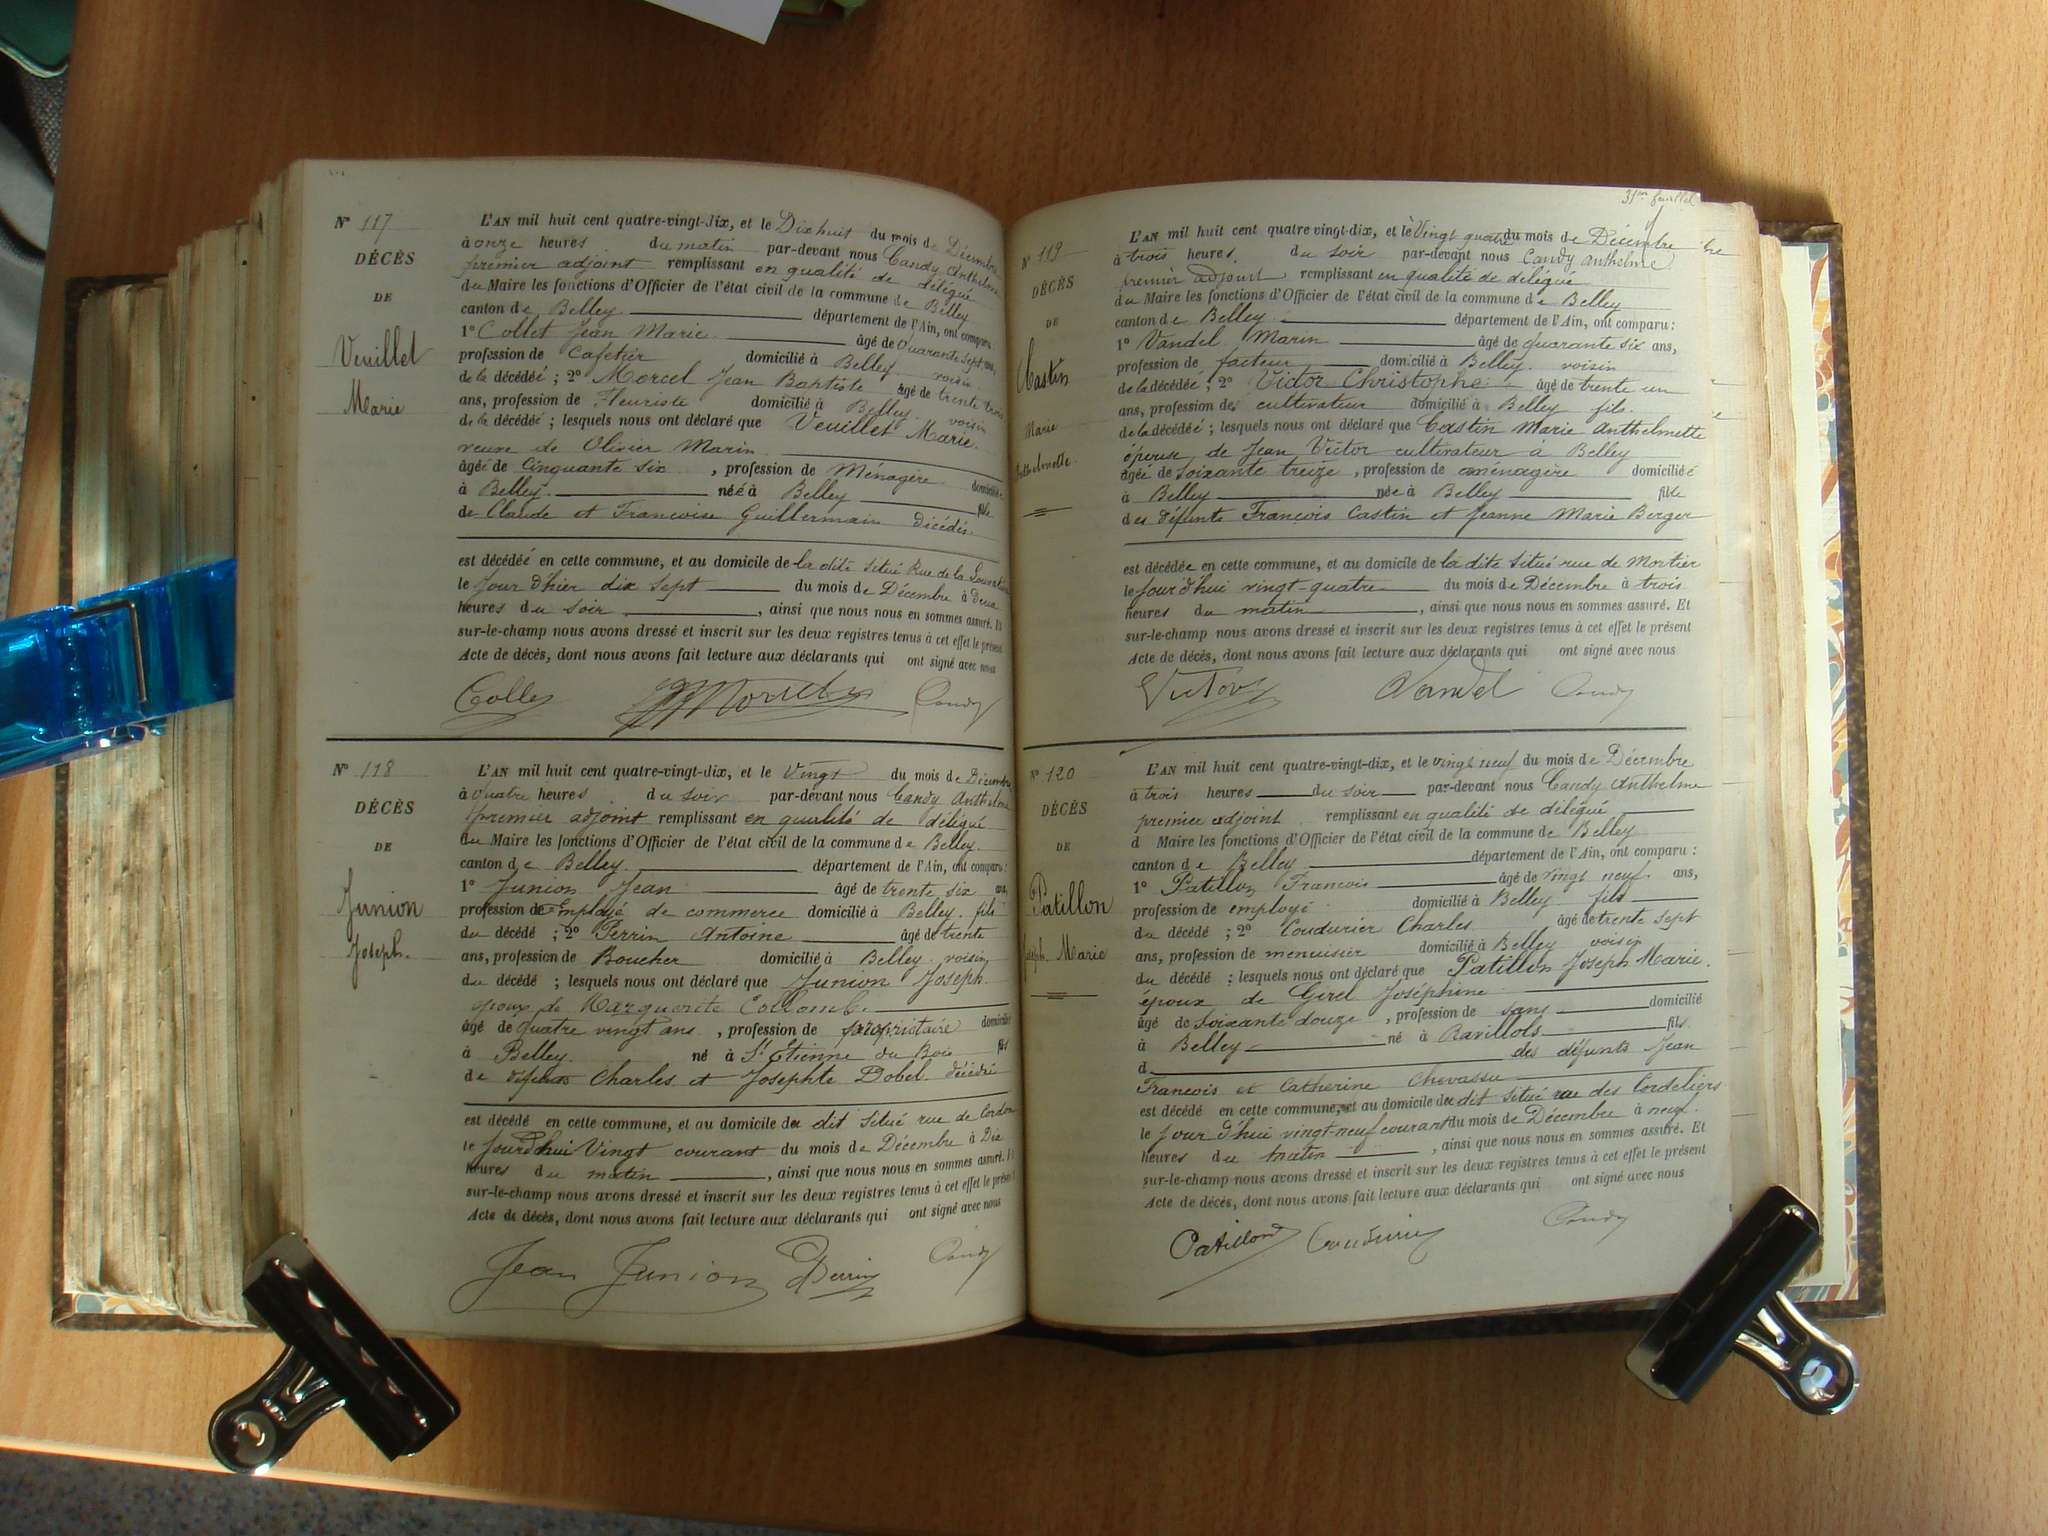 Nº 117
DÉCÈS
DE
Veuillet
Marie
L'AN mil huit cent quatre-vingt-dix, et le Dix huit du mois de Décembre
à onze heures du matin par-devant nous Candy Anthelme
premier adjoint remplissant en qualité de délégué
du Maire les fonctions d'Officier de l'état civil de la commune de Belley
canton de Belley département de l'Ain, ont comparu:
1º Collet Jean Marie âgé de quarante sept ans,
profession de Cafetier domicilié à Belley voisin
de la décédée ; 2º Morcel Jean Baptiste âgé de trente trois
ans, profession de fleuriste domicilié à Belley voisin
de la décédée ; lesquels nous ont déclaré que Veuillet Marie
veuve de Olivier Marin
âgée de cinquante six , profession de Ménagère domiciliée
à Belley née à Belley fille
de Claude et Françoise Guillermain décédés.
est décédée en cette commune, et au domicile de la dite situé Rue de la
le jour d'hier dix sept du mois de Décembre à deux
heures du soir , ainsi que nous nous en sommes assuré. Et
sur-le-champ nous avons dressé et inscrit sur les deux registres tenus à cet effet le présent
Acte de décès, dont nous avons fait lecture aux déclarants qui ont signé avec nous
Collet Morcel Candy
Nº 118
DÉCÈS
DE
Junion
Joseph.
L'AN mil huit cent quatre-vingt-dix, et le Vingt du mois de Décembre
à quatre heures du soir par-devant nous Candy Anthelme
premier adjoint remplissant en qualité de délégué
du Maire les fonctions d'Officier de l'état civil de la commune de Belley.
canton de Belley département de l'Ain, ont comparu:
1º Junion Jean âgé de trente six ans,
profession de Employé de commerce domicilié à Belley fils
du décédé ; 2º Perrin Antoine âgé de trente
ans, profession de Boucher domicilié à Belley voisin
du décédé ; lesquels nous ont déclaré que Junion Joseph
époux de Marguerite Collomb.
âgé de quatre vingt ans , profession de propriétaire domicilié
à Belley né à St Etienne du Bois fils
de défunts Charles et Josephte Dobel décédé
est décédé en cette commune, et au domicile du dit situé rue de
le jourd'hui Vingt courant du mois de Décembre à Dix
heures du matin , ainsi que nous nous en sommes assuré. Et
sur-le-champ nous avons dressé et inscrit sur les deux registres tenus à cet effet le présent
Acte de décès, dont nous avons fait lecture aux déclarants qui ont signé avec nous
Jean Junion Perrin Candy
31me feuillet
Nº 119
DÉCÈS
DE
Castin
Marie
Anthelmette
L'AN mil huit cent quatre-vingt-dix, et le Vingt quatre du mois de Décembre
à trois heures. du soir par-devant nous Candy Anthelme
premier adjoint remplissant en qualité de délégué
du Maire les fonctions d'Officier de l'état civil de la commune de Belley
canton de Belley département de l'Ain, ont comparu :
1º Vandel Marin âgé de quarante six ans,
profession de facteur domicilié à Belley voisin
de la décédée ; 2º Victor Christophe âgé de trente un
ans, profession de cultivateur domicilié à Belley fils.
de la décédée ; lesquels nous ont déclaré que Castin Marie Anthelmette
épouse de Jean Victor cultivateur à Belley
âgée de soixante treize , profession de ménagère domiciliée
à Belley née à Belley fille
des défunts François Castin et Jeanne Marie Berger
est décédée en cette commune, et au domicile de la dite situé rue de Mortier
le jourd'hui vingt-quatre du mois de Décembre à trois
heures du matin , ainsi que nous nous en sommes assuré. Et
sur-le-champ nous avons dressé et inscrit sur les deux registres tenus à cet effet le présent
Acte de décès, dont nous avons fait lecture aux déclarants qui ont signé avec nous
Victor Vandel Candy
Nº 120
DÉCÈS
DE
Patillon
Joseph Marie
L'AN mil huit cent quatre-vingt-dix, et le vingt neuf du mois de Décembre
à trois heures du soir par-devant nous Candy Anthelme
premier adjoint remplissant en qualité de délégué
d Maire les fonctions d'Officier de l'état civil de la commune de Belley
canton de Belley département de l'Ain, ont comparu :
1º Patillon François âgé de vingt neuf. ans,
profession de employé domicilié à Belley fils
du décédé ; 2º Coudurier Charles âgé de trente sept
ans, profession de menuisier domicilié à Belley voisin
du décédé ; lesquels nous ont déclaré que Patillon Joseph Marie.
époux de Girel Joséphine
âgé de soixante douze , profession de sans domicilié
à Belley né à Ravillols fils
d des défunts Jean
François et Catherine Chevassu
est décédé en cette commune, et au domicile du dit situé rue des Cordeliers
le jour d'hui vingt-neuf courant du mois de Décembre à neuf.
heures du matin , ainsi que nous nous en sommes assuré. Et
sur-le-champ nous avons dressé et inscrit sur les deux registres tenus à cet effet le présent
Acte de décès, dont nous avons fait lecture aux déclarants qui ont signé avec nous
Patillon Coudurier Candy